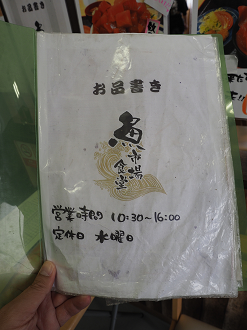 お品書き
魚
市場
食堂
営業時間 10:30~16:00
定休日 水曜日